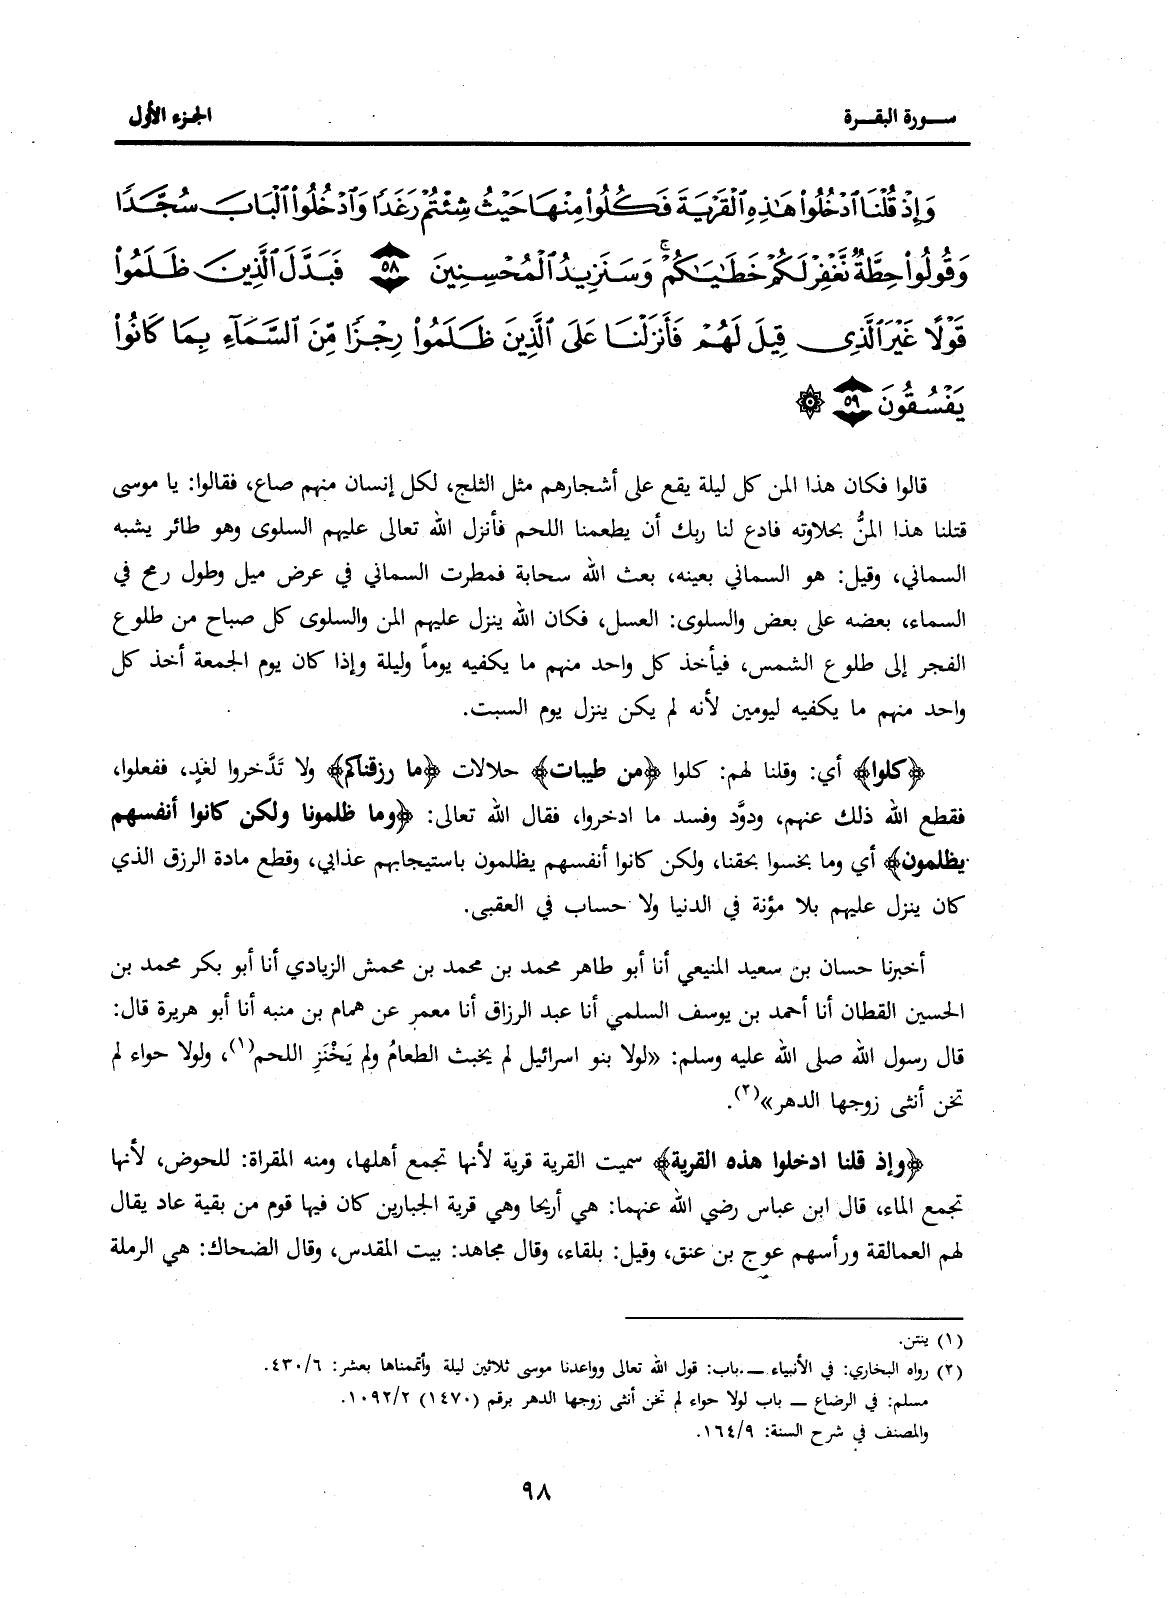 سـورة البقـرة
الجزء الأول
وَإِذْ قُلْنَا ٱدْخُلُوا۟ هَٰذِهِ ٱلْقَرْيَةَ فَكُلُوا۟ مِنْهَا حَيْثُ شِئْتُمْ رَغَدًا وَٱدْخُلُوا۟ ٱلْبَابَ سُجَّدًا
وَقُولُوا۟ حِطَّةٌ نَّغْفِرْ لَكُمْ خَطَٰيَٰكُمْ ۚ وَسَنَزِيدُ ٱلْمُحْسِنِينَ ٥٨ فَبَدَّلَ ٱلَّذِينَ ظَلَمُوا۟
قَوْلًا غَيْرَ ٱلَّذِى قِيلَ لَهُمْ فَأَنزَلْنَا عَلَى ٱلَّذِينَ ظَلَمُوا۟ رِجْزًا مِّنَ ٱلسَّمَآءِ بِمَا كَانُوا۟
يَفْسُقُونَ ٥٩ ۞
قالوا فكان هذا المن كل ليلة يقع على أشجارهم مثل الثلج، لكل إنسان منهم صاع، فقالوا: يا موسى
قتلنا هذا المنُّ بحلاوته فادع لنا ربك أن يطعمنا اللحم فأنزل الله تعالى عليهم السلوى وهو طائر يشبه
السماني، وقيل: هو السماني بعينه، بعث الله سحابة فمطرت السماني في عرض ميل وطول رمح في
السماء، بعضه على بعض والسلوى: العسل، فكان الله ينزل عليهم المن والسلوى كل صباح من طلوع
الفجر إلى طلوع الشمس، فيأخذ كل واحد منهم ما يكفيه يوماً وليلة وإذا كان يوم الجمعة أخذ كل
واحد منهم ما يكفيه ليومين لأنه لم يكن ينزل يوم السبت.
﴿كلوا﴾ أي: وقلنا لهم: كلوا ﴿من طيبات﴾ حلالات ﴿ما رزقناكم﴾ ولا تَدَّخروا لغدٍ، ففعلوا،
فقطع الله ذلك عنهم، ودوَّد وفسد ما ادخروا، فقال الله تعالى: ﴿وما ظلمونا ولكن كانوا أنفسهم
يظلمون﴾ أي وما بخسوا بحقنا، ولكن كانوا أنفسهم يظلمون باستيجابهم عذابي، وقطع مادة الرزق الذي
كان ينزل عليهم بلا مؤنة في الدنيا ولا حساب في العقبى.
أخبرنا حسان بن سعيد المنيعي أنا أبو طاهر محمد بن محمد بن محمش الزيادي أنا أبو بكر محمد بن
الحسين القطان أنا أحمد بن يوسف السلمي أنا عبد الرزاق أنا معمر عن همام بن منبه أنا أبو هريرة قال:
قال رسول الله صلى الله عليه وسلم: «لولا بنو اسرائيل لم يخبث الطعامُ ولم يَخْنَزِ اللحم(١)، ولولا حواء لم
تخن أنثى زوجها الدهر»(٢).
﴿وإذ قلنا ادخلوا هذه القرية﴾ سميت القرية قرية لأنها تجمع أهلها، ومنه المقراة: للحوض، لأنها
تجمع الماء، قال ابن عباس رضي الله عنهما: هي أريحا وهي قرية الجبارين كان فيها قوم من بقية عاد يقال
لهم العمالقة ورأسهم عوج بن عنق، وقيل: بلقاء، وقال مجاهد: بيت المقدس، وقال الضحاك: هي الرملة
(١) ينتن.
(٢) رواه البخاري: في الأنبياء ــ باب: قول الله تعالى وواعدنا موسى ثلاثين ليلة وأتممناها بعشر: ٤٣٠/٦.
مسلم: في الرضاع ــ باب لولا حواء لم تخن أنثى زوجها الدهر برقم (١٤٧٠) ١٠٩٢/٢.
والمصنف في شرح السنة: ١٦٤/٩.
٩٨